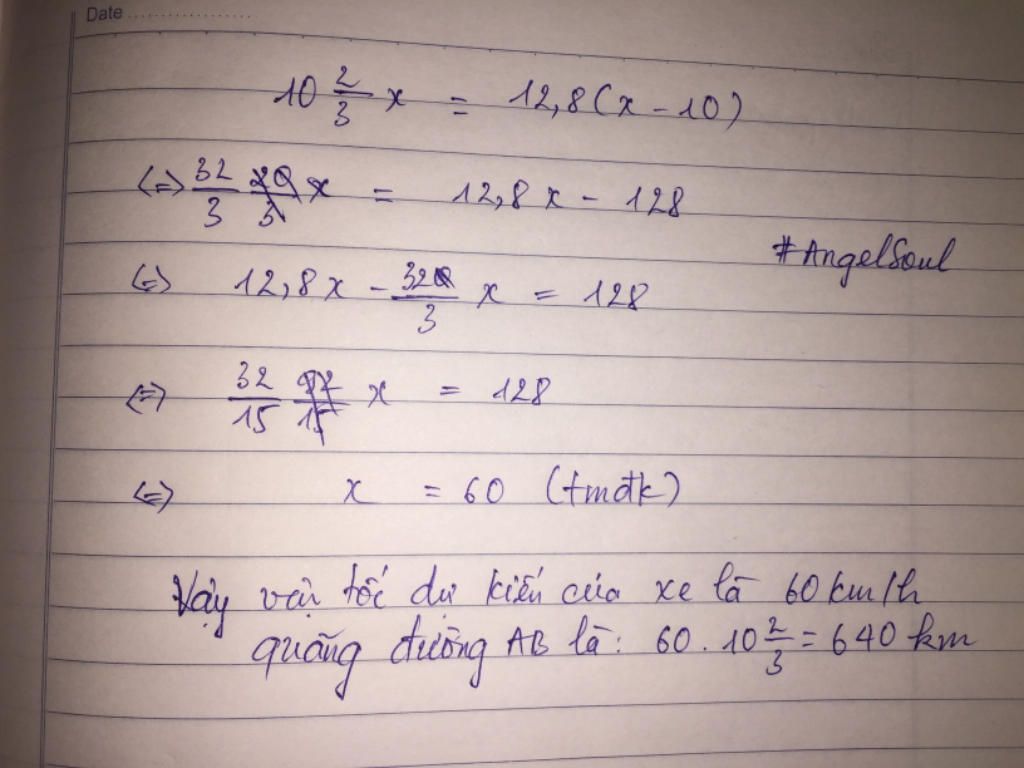 Date ..................
10 2/3 x = 12,8(x - 10)
<=> 32/3 x = 12,8x - 128
#AngelSoul
<=> 12,8x - 32/3 x = 128
<=> 32/15 x = 128
<=> x = 60 (tmđk)
Vậy vận tốc dự kiến của xe là 60km/h
quãng đường AB là: 60 . 10 2/3 = 640 km